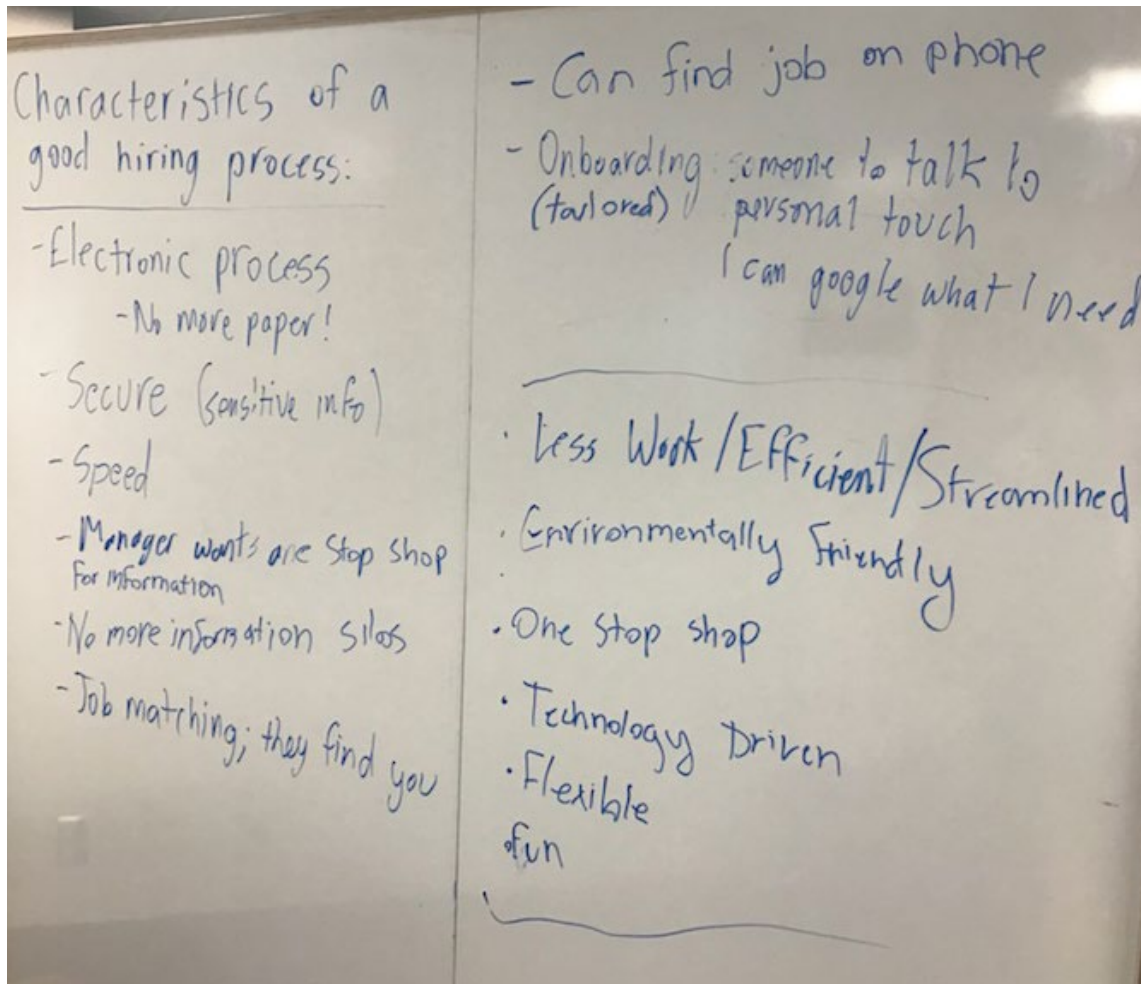 Characteristics of a
good hiring process:
-Electronic process
-No more paper!
-Secure (sensitive info)
-Speed
-Manager wants one stop shop
for information
-No more information silos
-Job matching; they find you
- Can find job on phone
- Onboarding: someone to talk to
(tailored) personal touch
I can google what I need
· Less Work/Efficient/Streamlined
· Environmentally Friendly
· One stop shop
· Technology Driven
· Flexible
· fun